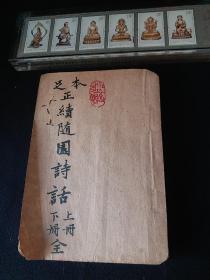 足本
正續隨園詩話
上冊
下冊全